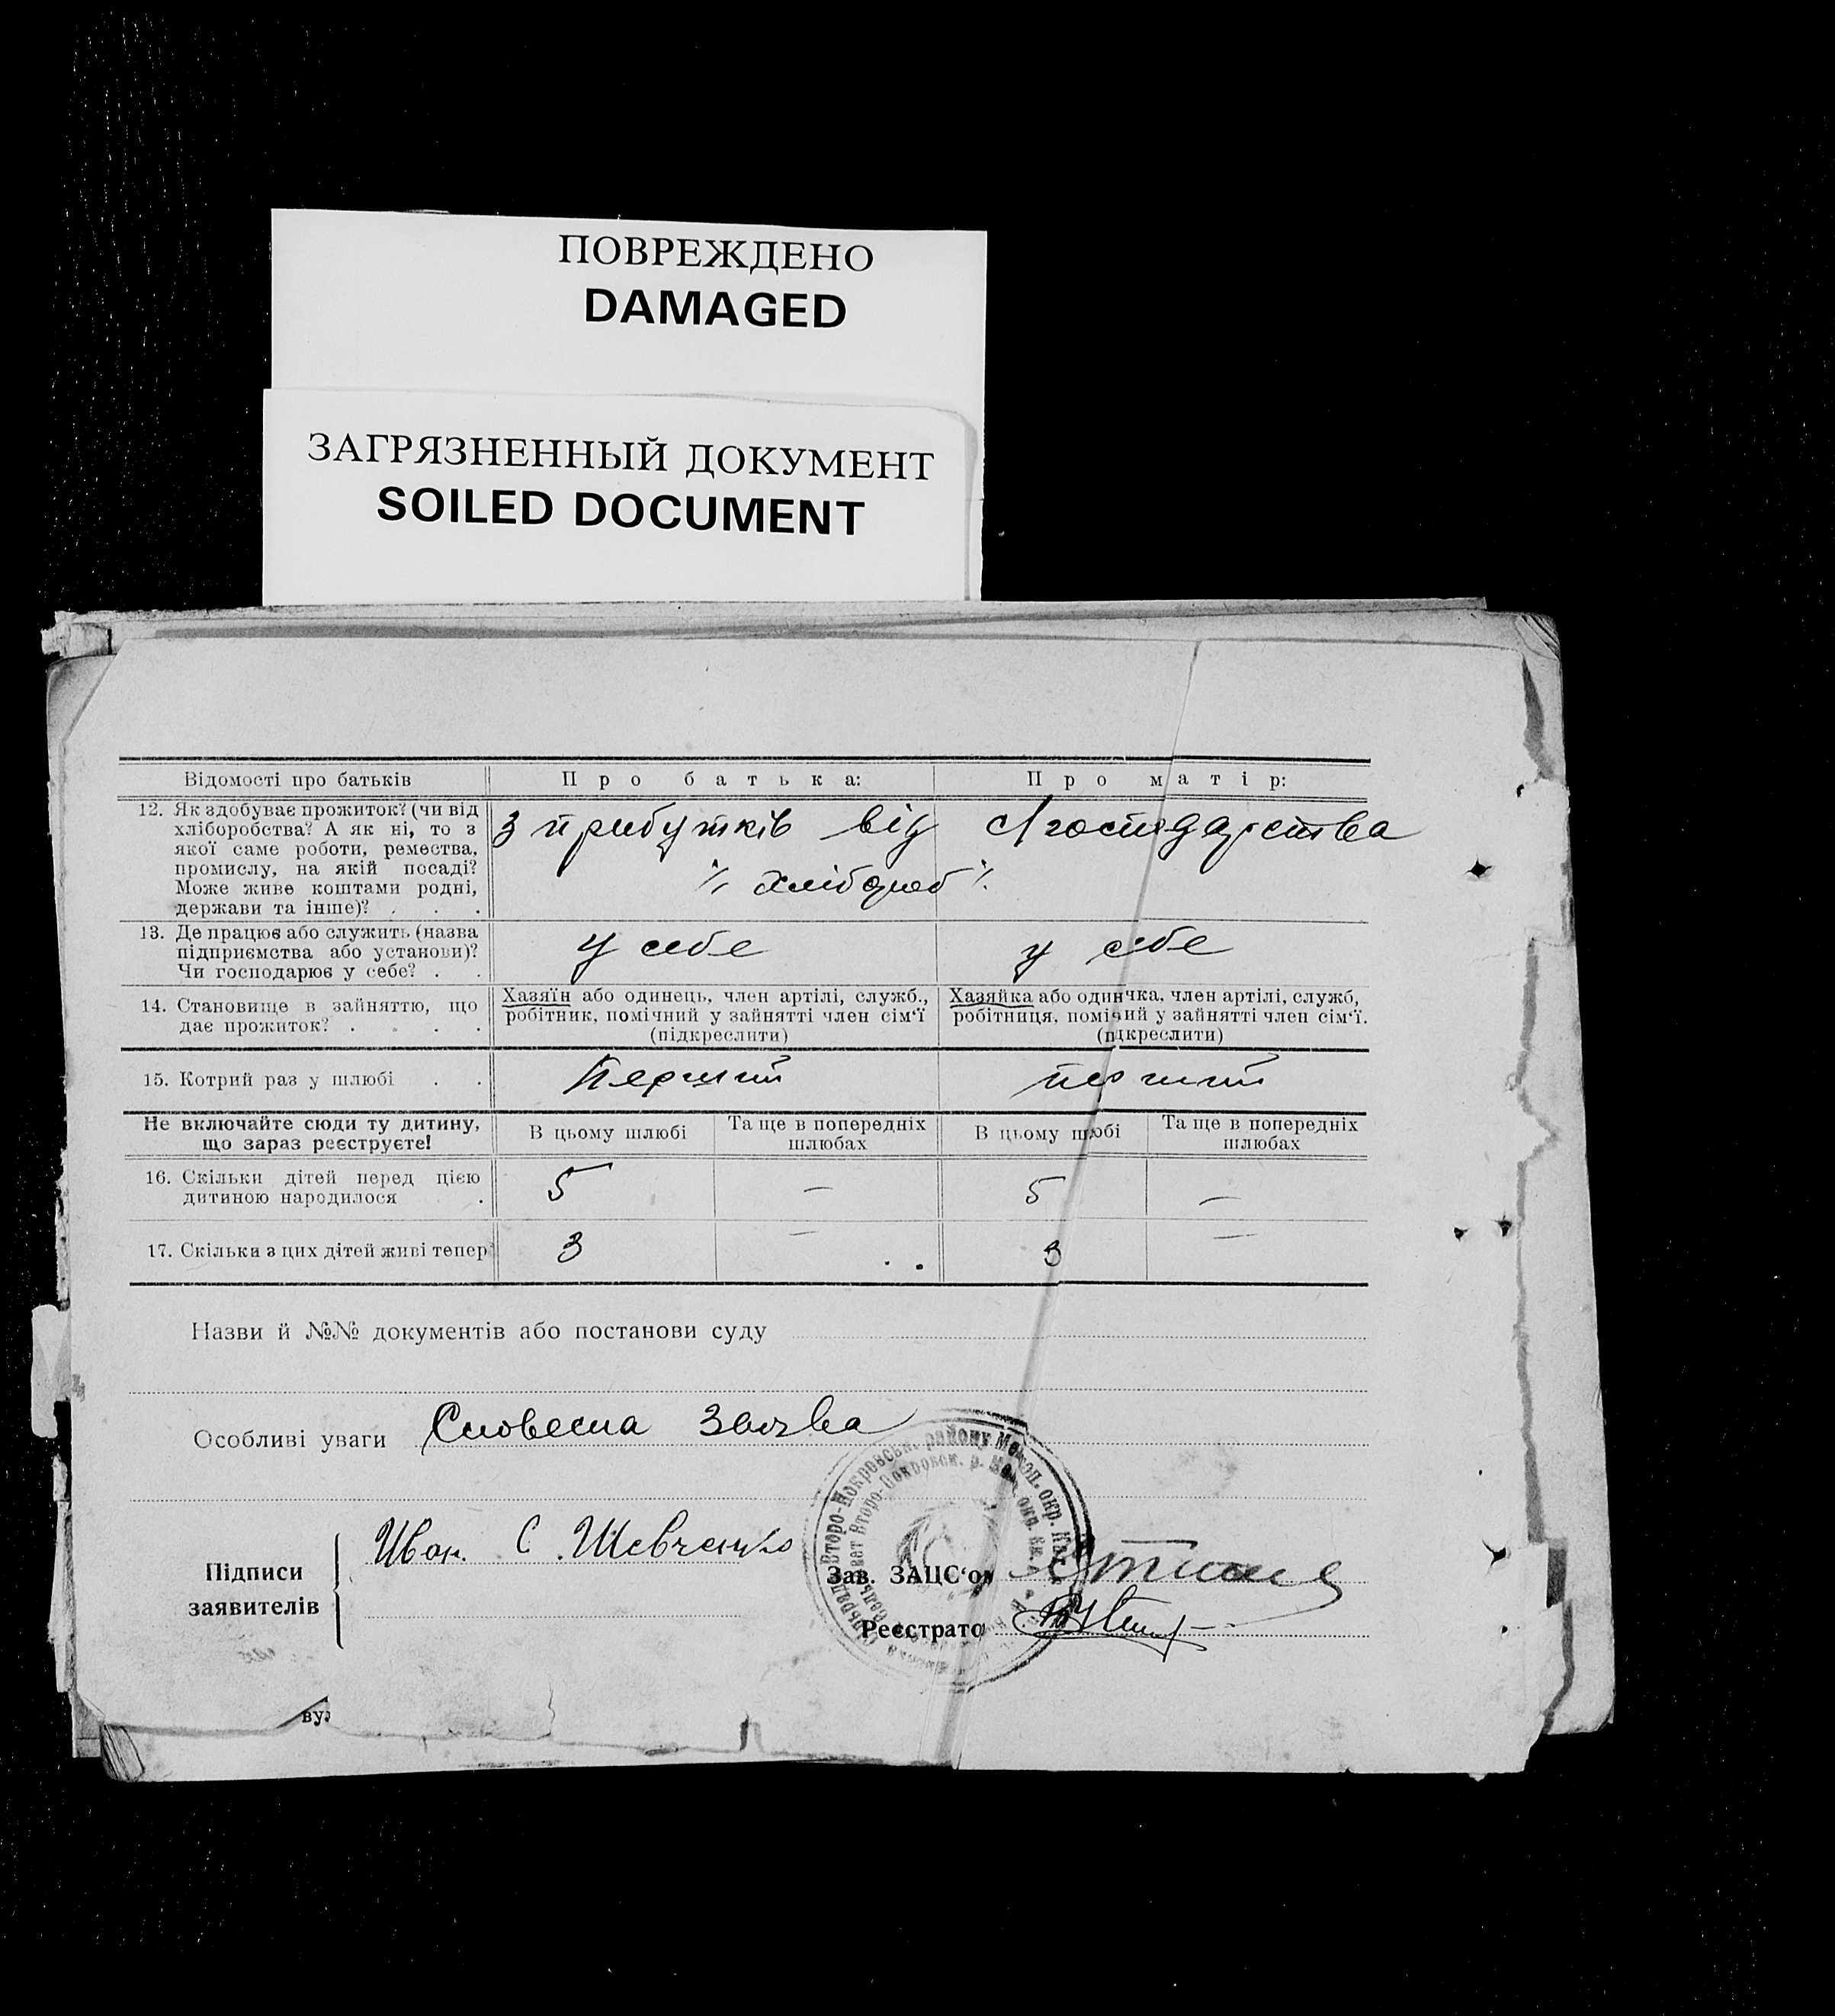 ПОВРЕЖДЕНО
DAMAGED
ЗАГРЯЗНЕННЫЙ ДОКУМЕНТ
SOILED DOCUMENT
Відомості про батьків
Про батька:
Про матір:
12. Як здобуває прожиток? (чи від
хліборобства? А як ні, то з
якої саме роботи, ремества,
промислу, на якій посаді?
Може живе коштами родні,
держави та інше)? . . .
З прибутків від с/господарства
/. хлібороб /.
13. Де працює або служить (назва
підприємства або установи)?
Чи господарює у себе? . .
у себе
у себе
14. Становище в зайняттю, що
дає прожиток? . . . .
Хазяїн або одинець, член артілі, служб.,
робітник, помічний у зайнятті член сім‘ї
(підкреслити)
Хазяйка або одиначка, член артілі, служб,
робітниця, помічний у зайнятті член сім‘ї.
(підкреслити)
15. Котрий раз у шлюбі . .
Перший
перший
Не включайте сюди ту дитину,
що зараз реєструєте!
В цьому шлюбі
Та ще в попередніх
шлюбах
В цьому шлюбі
Та ще в попередніх
шлюбах
16. Скільки дітей перед цією
дитиною народилося .
5
—
5
—
17. Скільки з цих дітей живі тепер
3
—
3
—
Назви й №№ документів або постанови суду
Особливі уваги Словесна Заява
Підписи
заявителів
Иван С Шевченко
Второ-Покровськ. району Мелітоп. окр.
Второ-Покровск. р.
Зав. ЗАЦС‘ом
Реєстратор
вул